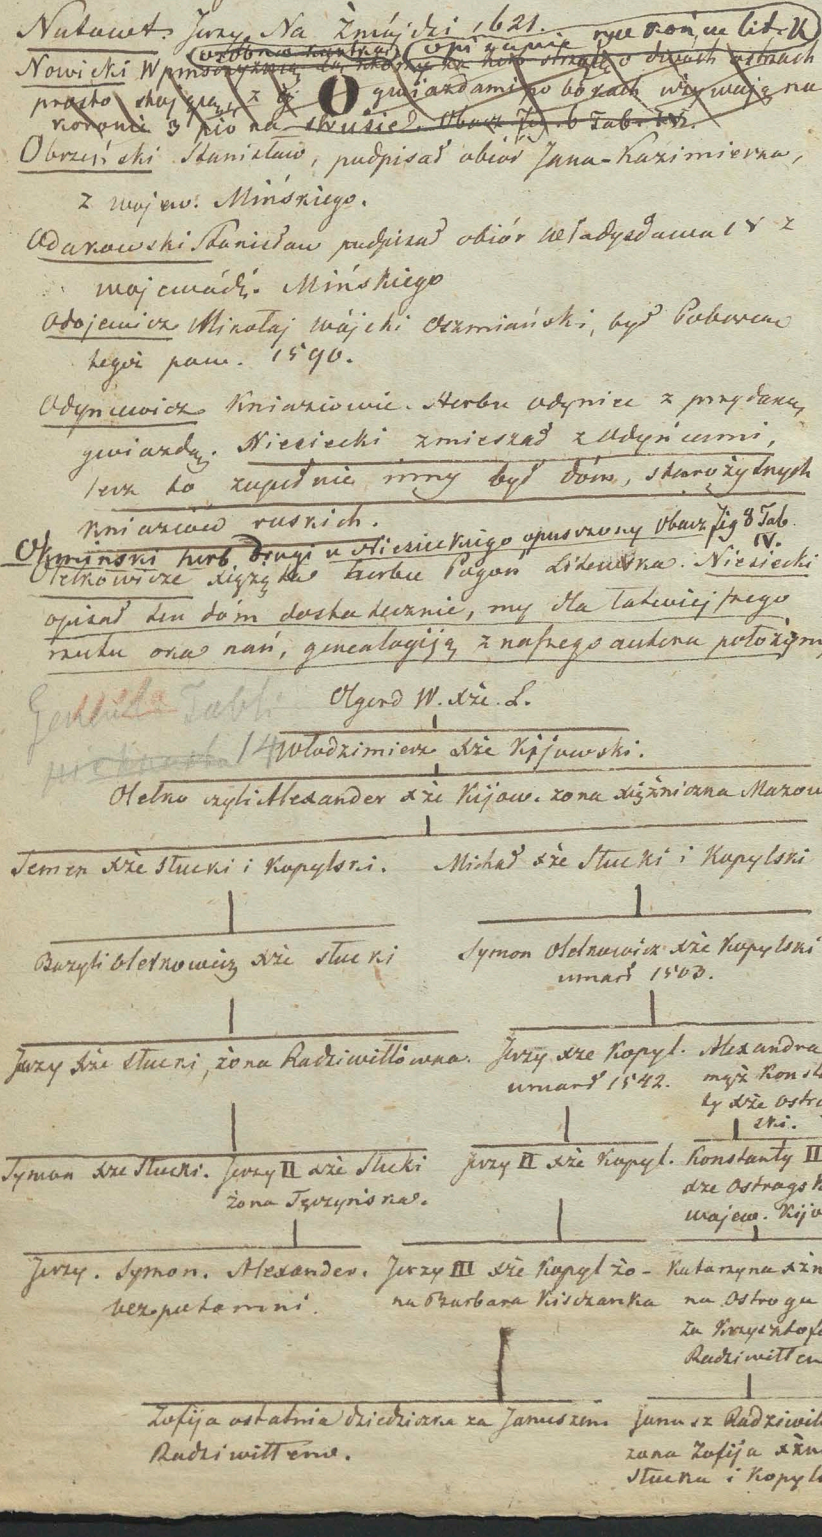 Nutowt Jerzy Na Żmujdzi 1621.
opisanie na końcu lit. U
Nowicki
prosto stojącą, z gwiazdami po bokach
koronie 3 piór na strusie.
O
Obrzęski Stanisław, podpisał obiór Jana-Kazimierza,
z wojew. Mińskiego.
Odakowski Stanisław podpisał obiór Władysława IV z
wojewódz. Mińskiego
Odojewicz Mikołaj wójski Oszmiański, był Poborcą
tegoż pow. 1590.
Odyncewicz Kniaziowie. Herbu odyniec z przydaną
gwiazdą. Niesiecki zmieszał z Odyńcami,
lecz to zupełnie inny był dóm, starożytnych
kniaziów ruskich.
Okmiński herb drugi u Niesieckiego opuszczony Obacz fig 8 Tab.
IV.
Olelkowicze Xiążęta herbu Pogoń Litewska. Niesiecki
opisał ten dóm dostatecznie, my dla łatwiejszego
rzutu oka nań, genealogiją z naszego autora położymy
Olgerd W. Xże. L.
14 Włodzimierz Xże Kijowski.
Olelko czyli Alexander Xże Kijow. żona xiężniczna Mazow
Semen Xże Słucki i Kopylski. Michał Xże Słucki i Kopylski
Bazyli Olelkowicz Xże Słucki Symon Olelkowicz Xże Kopylski
umarł 1503.
Jerzy Xże Słucki, żona Radziwiłłówna. Jerzy Xże Kopyl. Alexandra
umarł 1542. mąż Konsta
ty Xże Ostro
ski.
Symon Xże Słucki. Jerzy II Xże Słucki Jerzy II Xże Kopyl. Konstanty II
żona Tęczyńska. Xże Ostrogsk
wojew. Kijo
Jerzy. Symon. Alexander. Jerzy III Xże Kopyl żo- Katarzyna Xżn
bezpotomni. na Barbara Kisczanka na Ostrogu
za Krzysztofe
Radziwiłłem
Zofija ostatnia dziedziczka za Januszem Janusz Radziwił
Radziwiłłem. żona Zofija Xżn
Słucka i Kopyls